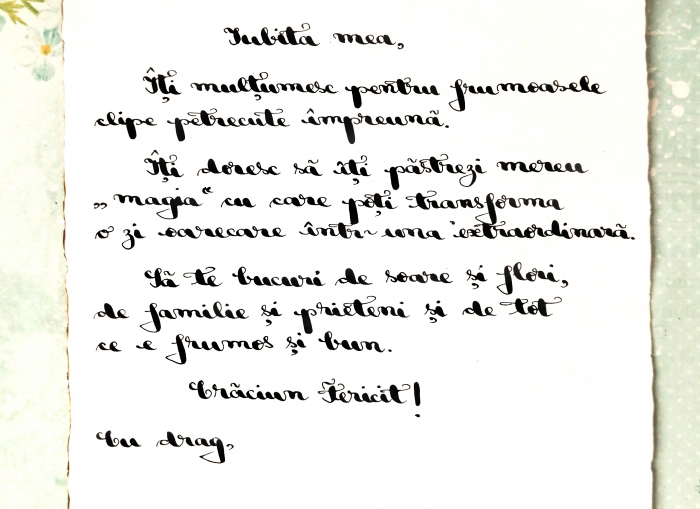 Iubita mea,
Îți mulțumesc pentru frumoasele
clipe petrecute împreună.
Îți doresc să îți păstrezi mereu
„magia“ cu care poți transforma
o zi oarecare într-una extraordinară.
Să te bucuri de soare și flori,
de familie și prieteni și de tot
ce e frumos și bun.
Crăciun Fericit!
Cu drag,